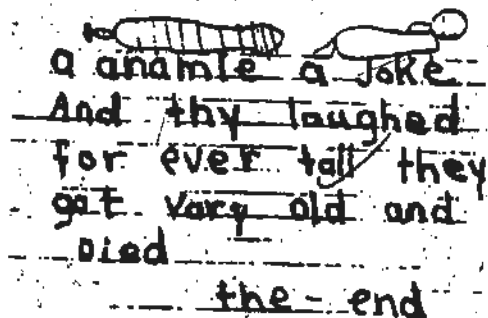 a anamle a Joke
And thy laughed
for ever tall they
gat vary old and
Died
the - end